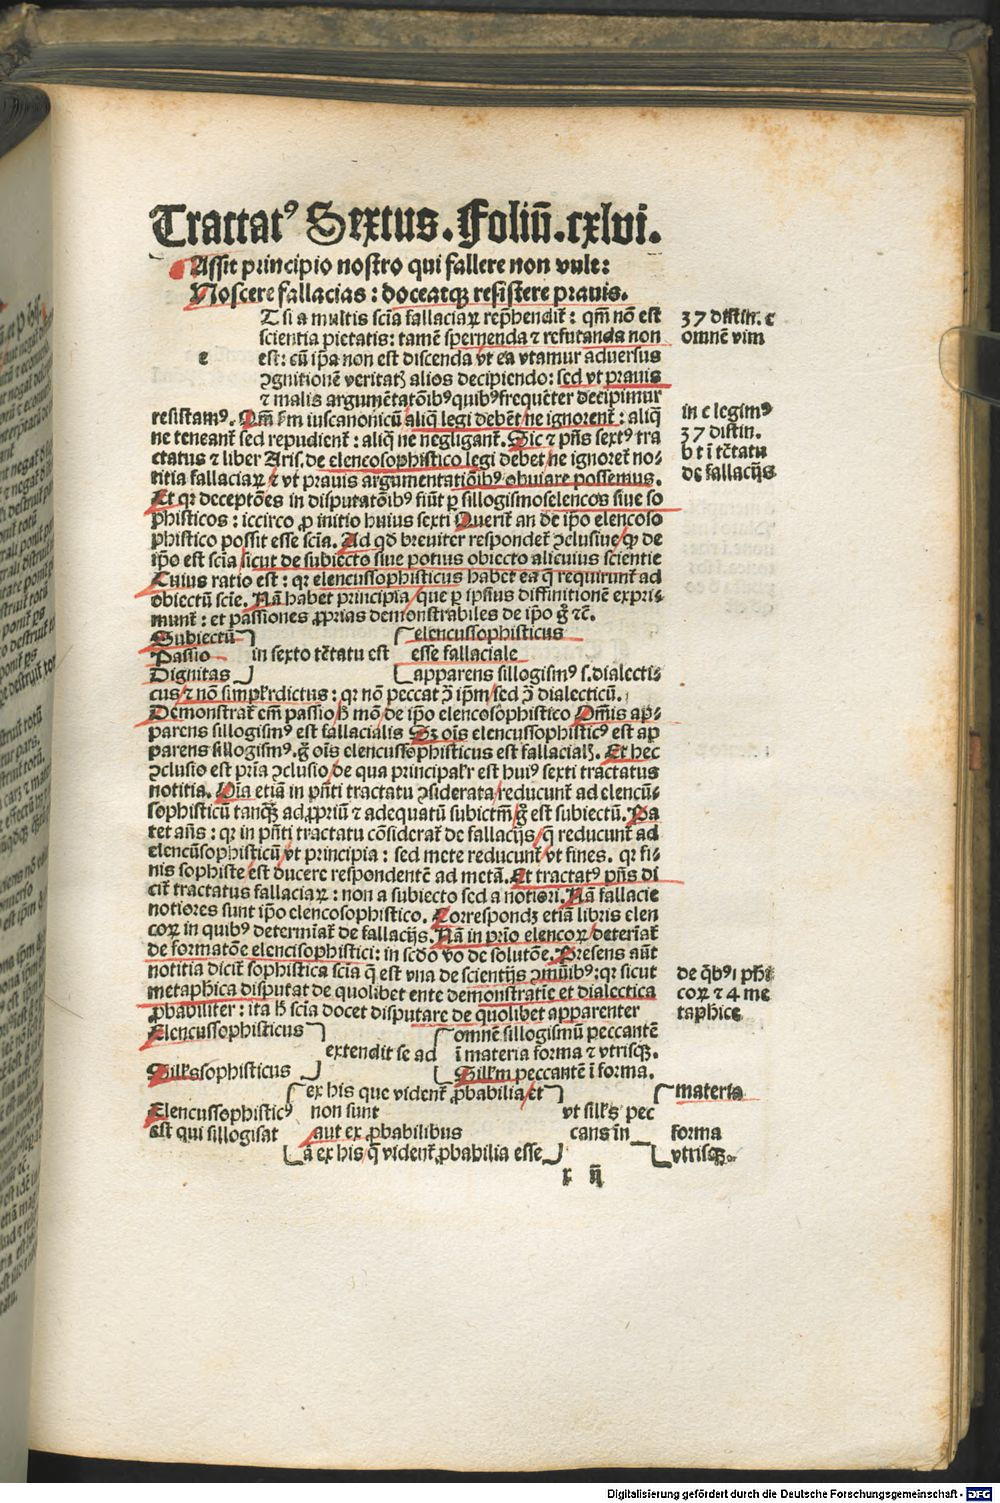 Tractatꝰ Sextus. Foliū. cxlvi.
Assit principio nostro qui fallere non vult:
Noscere fallacias: doceatqꝫ resistere prauis.
T si a multis scīa fallaciaꝝ rep̄hendit̄: qm̄ nō est
scientia pietatis: tamē spernenda ⁊ refutanda non
e
est: cū ip̄a non est discenda vt ea vtamur aduersus
ꝯgnitionē veritatꝭ alios decipiendo: sed vt prauis
⁊ malis argumētatōibꝰ quibꝰ frequēter decipimur
resistamꝰ. Qm̄ sm̄ iuscanonicū aliq̄ legi debēt ne ignorent̄: aliq̄
ne teneant̄ sed repudient̄: aliq̄ ne negligant̄. Sic ⁊ pn̄s sextꝰ tra
ctatus ⁊ liber Aris. de elencosophistico legi debet ne ignoret̄ no-
titia fallaciaꝝ ⁊ vt prauis argumentatiōibꝰ obuiare possemus.
Et qꝛ deceptōes in disputatōibꝰ fiūt ꝑ sillogismos elencos siue so
phisticos: iccirco ꝓ initio huius sexti Querit̄ an de ip̄o elencoso
phistico possit esse scīa. Ad qd̄ breuiter respondet̄ ꝯclusiue ꝙ de
ip̄o est scīa sicut de subiecto siue potius obiecto alicuius scientie
Cuius ratio est: qꝛ elencussophisticus habet ea q̄ requirunt̄ ad
obiectū scīe. Nā habet principia que ꝑ ipsius diffinitionē expri-
munt̄: et passiones ꝓprias demōstrabiles de ip̄o ḡ ⁊c̄.
Subiectū
Passio in sexto tc̄tatu est
Dignitas
elencussophisticus
esse fallaciale
apparens sillogismꝰ s. dialecti-
cus ⁊ nō simplr̄ dictus: qꝛ nō peccat ꝯ̄ ip̄m sed ꝯ̄ dialecticū.
Demonstrat̄ em̄ passio h̄ mō de ip̄o elencosophistico Om̄is ap-
parens sillogismꝰ est fallacialis Sꝫ oīs elencussophisticꝰ est ap
parens sillogismꝰ. ḡ oīs elencussophisticus est fallacialꝭ. Et hec
ꝯclusio est pr̄ia ꝯclusio de qua principalr̄ est huiꝰ sexti tractatus
notitia. Oīa etiā in pn̄ti tractatu ꝯsiderata reducunt̄ ad elencū-
sophisticū tanqꝫ̄ ad ꝓpriū ⁊ adequatū subictm̄ ḡ est subiectū. Pa
tet an̄s: qꝛ in pn̄ti tractatu cōsiderat̄ de fallacijs q̄ reducunt̄ ad
elencūsophisticū vt principia: sed mete reducunt̄ vt fines. qꝛ fi-
nis sophiste est ducere respondentē ad metā. Et tractatꝰ pn̄s di
cit̄ tractatus fallaciaꝝ: non a subiecto sed a notiori. Nā fallacie
notiores sunt ip̄o elencosophistico. Correspondꝫ etiā libris elen
coꝝ in quibꝰ determīat̄ de fallacijs. Nā in prīo elencoꝝ deterīat̄
de formatōe elencisophistici: in scd̄o vo de solutōe. Presens aūt
notitia dicit̄ sophistica scīa q̄ est vna de scientijs ꝯmūibꝰ: qꝛ sicut
metaphica disputat de quolibet ente demonstratīe et dialectica
ꝓbabiliter: ita h̄ scīa docet disputare de quolibet apparenter
Elencussophisticus
extendit se ad
Sillr̄ssophisticus
omnē sillogismū peccantē
ī materia forma ⁊ vtrisqꝫ.
Sillr̄m peccantē ī forma.
Elencussophisticꝰ
est qui sillogisat
ex his que vident̄ ꝓbabilia et
non sunt
aut ex ꝓbabilibus
ā ex his q̄ vident̄ ꝓbabilia esse
vt sillr̄s pec
cans in
materia
forma
vtrisqꝫ.
x ij
37 distin. c
omnē vim
in c legimꝰ
37 distin.
b t ī tc̄tatu
de fallacijs
de q̄bꝰ 1 ph̄i
coꝝ ⁊ 4 me
taphice
Digitalisierung gefördert durch die Deutsche Forschungsgemeinschaft - DFG